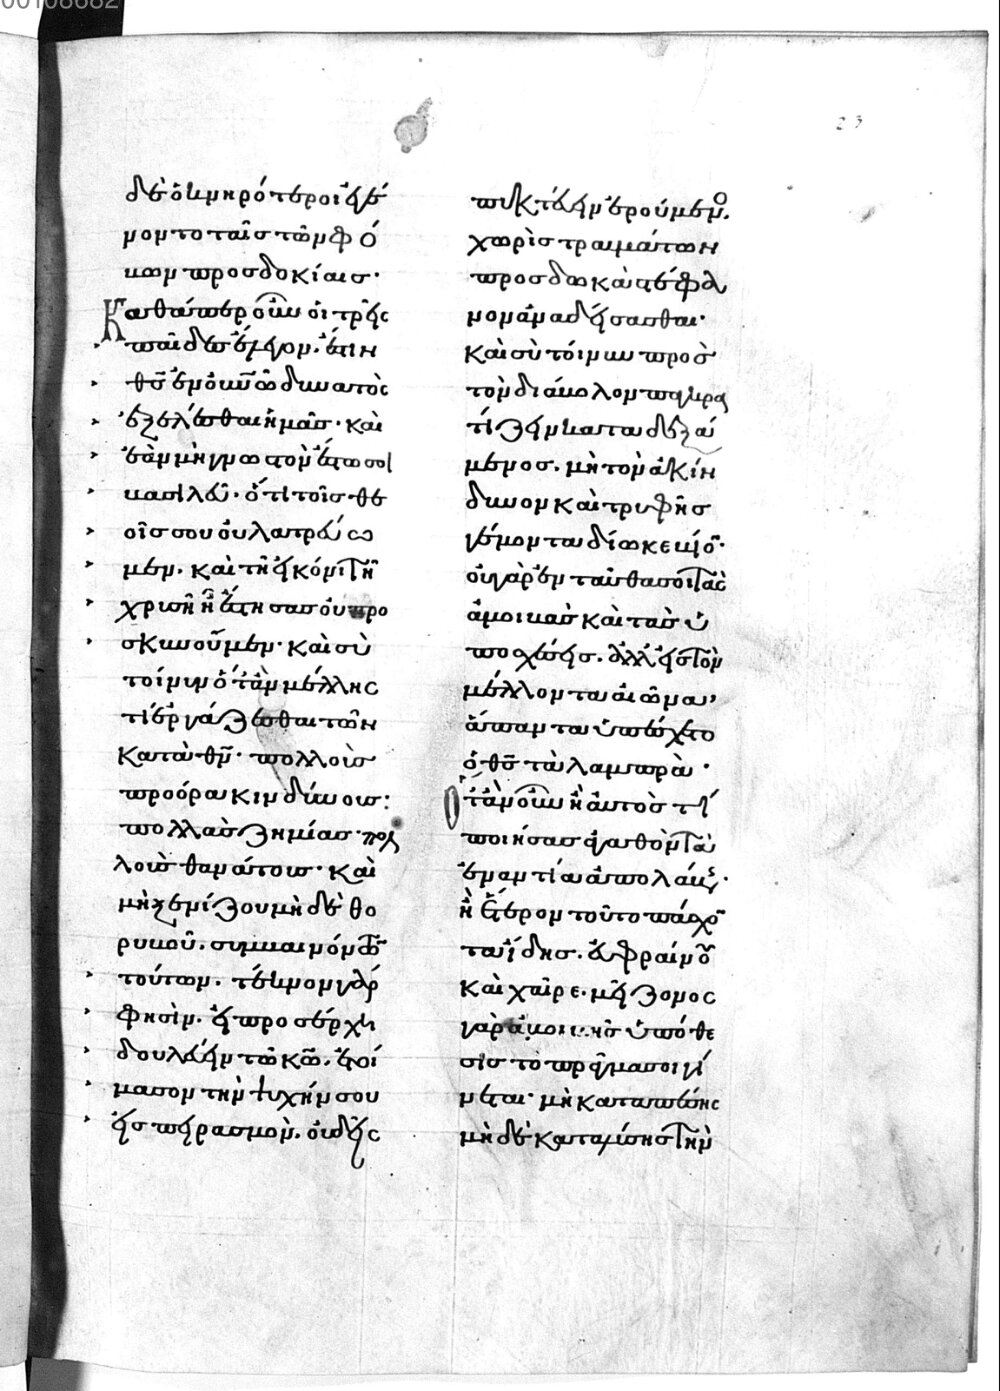 00108682
23
δὲ ὀκνηρότεροι γέ
νοντο ταῖς τῶν φό
βων προσδοκίαις·
Καθάπερ οὖν οἱ τρεῖς
παῖδες ἔλεγον. ἔστιν
θς̅ ἐν οὐνῶ δυνατὸς
ἐξελέσθαι ἡμᾶς· καὶ
ἐὰν μὴ γνωστὸν ἔστω σοι
βασιλεῦ· ὅτι τοῖς θε
οῖς σου οὐ λατρεύω
μεν. καὶ τῆ εἰκόνι τῆ
χρυσῆ ἧ ἔστησας οὐ προ
σκυνοῦμεν· καὶ σὺ
τοίνυν ὅταν μέλλης
τὶ ἐργάζεσθαι τῶν
κατὰ θν̅· πολλοὺς
προόρα κινδύνους:
πολλὰς ζημίας· πολ
λοὺς θανάτους· καὶ
μὴ ξενίζου μηδὲ θο
ρυβοῦ. συμβαινόντων
τούτων. τέκνον γάρ
φησὶν. εἰ προσέρχη
δουλεύειν τῶ κω̅. ἑτοί
μασον τὴν ψυχήν σου
εἰς πειρασμὸν. οὐδεὶς
πυκτεύειν αἱρούμενο
χωρὶς τραυμάτων
προσδωκᾶ στέφα
νον ἀναδήσασθαι·
καὶ σὺ τοίνυν πρὸς
τὸν διάβολον παγκρα
τίζειν καταδεξά
μενος. μὴ τὸν ἀκίν
δυνον καὶ τρυφῆς
γέμοντα δίωκε βίον·
οὐ γὰρ ἐνταῦθά σοι τὰς
ἀμοιβὰς καὶ τὰς ὑ
ποσχέσεις. ἀλλ' εἰς τὸν
μέλλοντα αἰῶνα,
ἅπαντα ὑπέσχετο
ὁ θς̅ τὰ λαμπρὰ·
Ὅταν οὖν ἢ αὐτὸς τὶ
ποιήσας ἀγαθὸν τὰ
ἐναντία ἀπολάβῃς·
ἢ ἕτερον τοῦτο πάσχον
τα ἴδης. εὐφραίνου
καὶ χαῖρε. μείζονος
γὰρ ἀμοιβῆς ὑπόθε
σις τὸ πρᾶγμά σοι γί
νεται· μὴ καταπέσης
μηδὲ καταλύσης τὴν